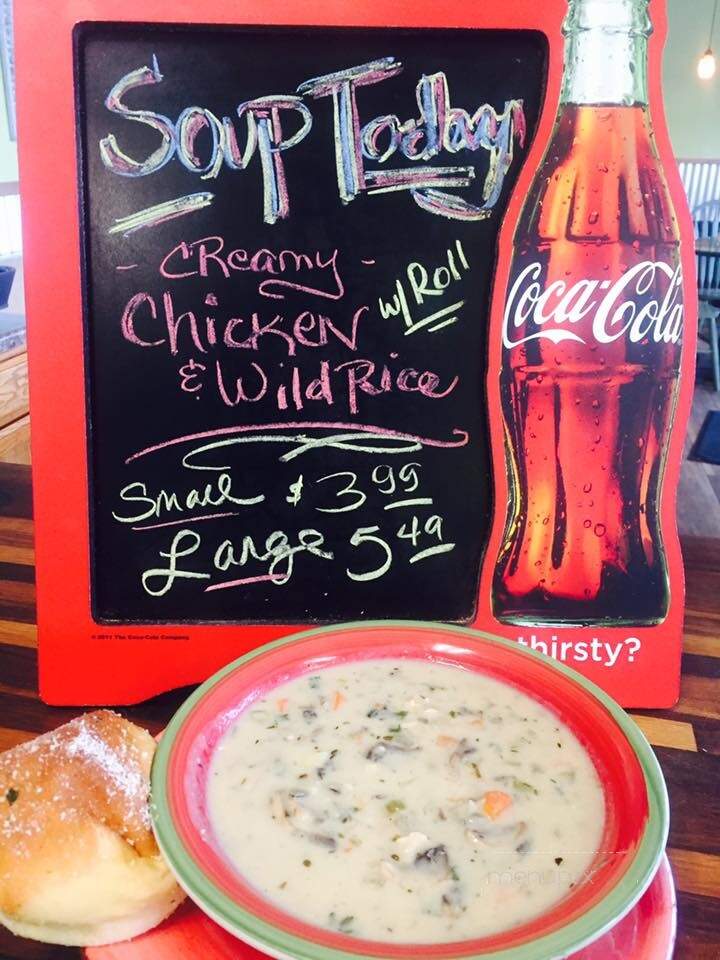 Soup Today
- CReamy -
Chicken w/ Roll
& Wild Rice
Small $3.99
Large 5.49
Coca-Cola
© 2011 The Coca-Cola Company
thirsty?
menupix